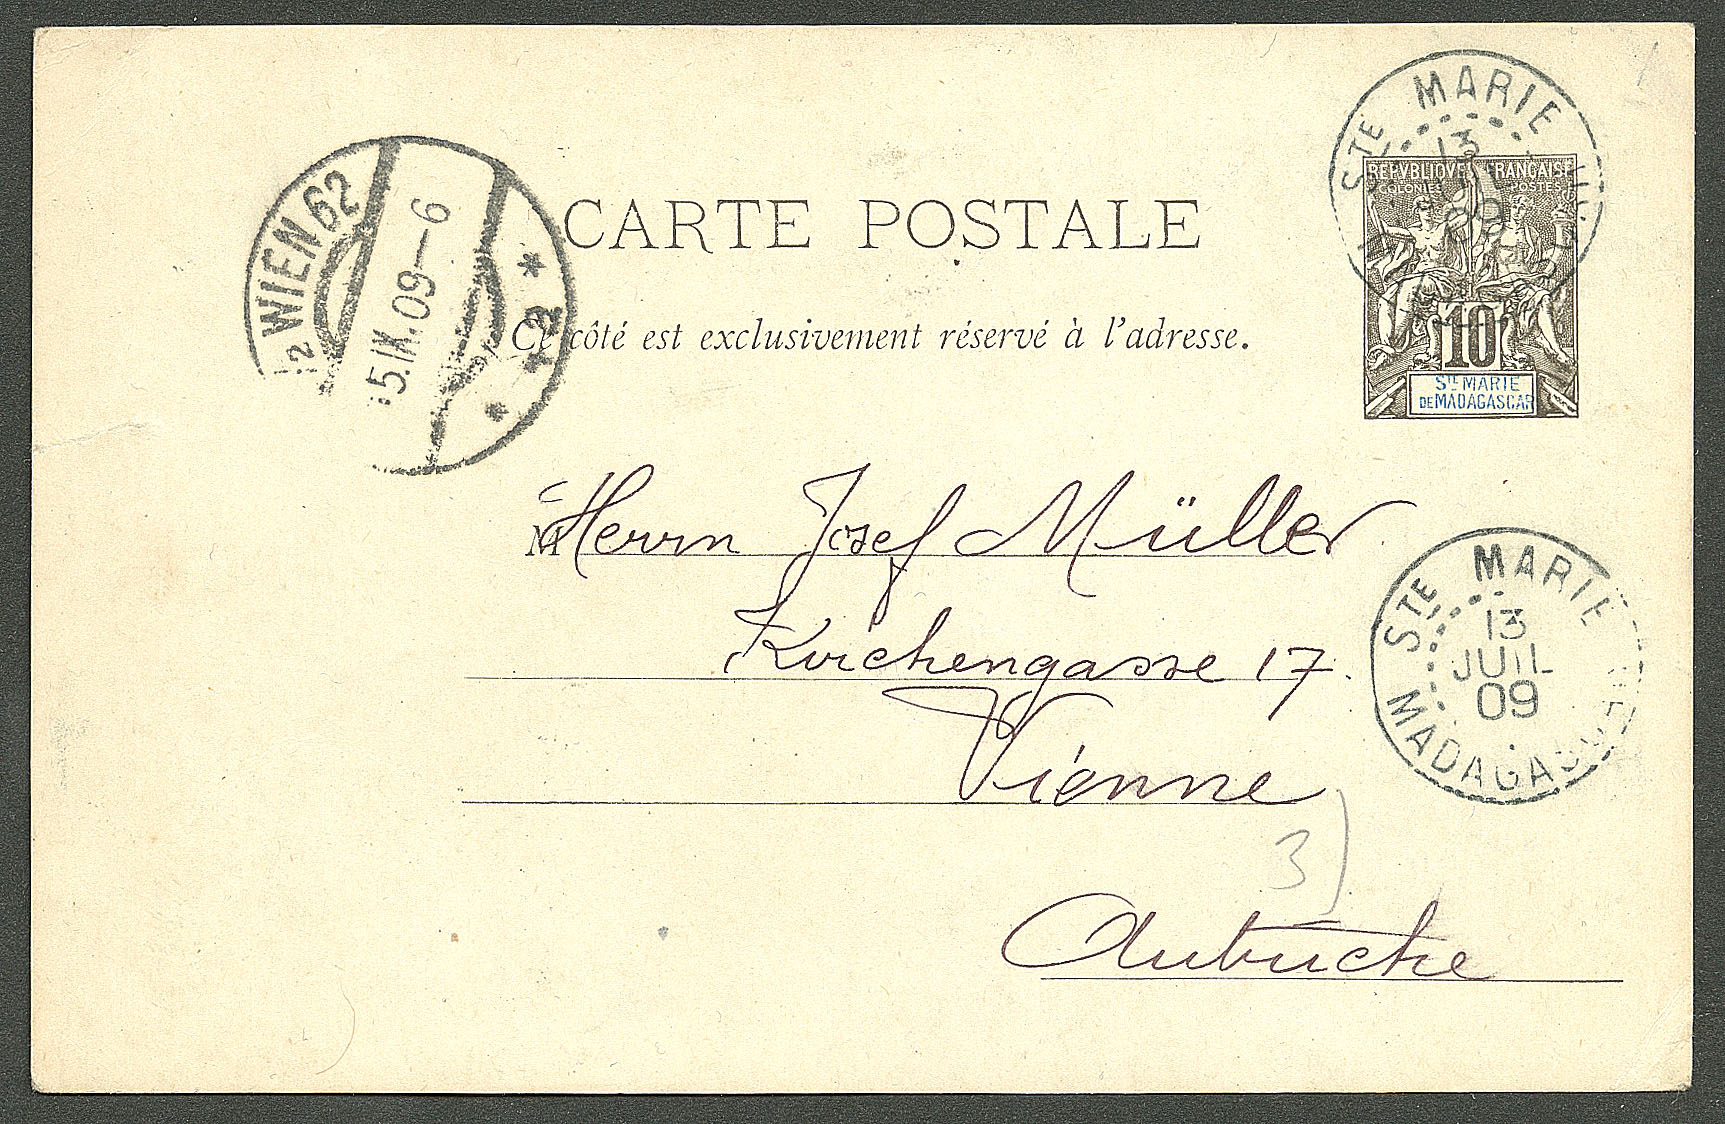 STE MARIE
13
09
REPVBLIQVE FRANÇAISE
COLONIES POSTES
10
STE MARIE
DE MADAGASCAR
WIEN 62
5.IX.09—6
CARTE POSTALE
Ce côté est exclusivement réservé à l'adresse.
M Herrn Josef Müller
Kirchengasse 17.
Vienne
3)
Autriche
STE MARIE DE
13
JUIL
09
MADAGASCAR